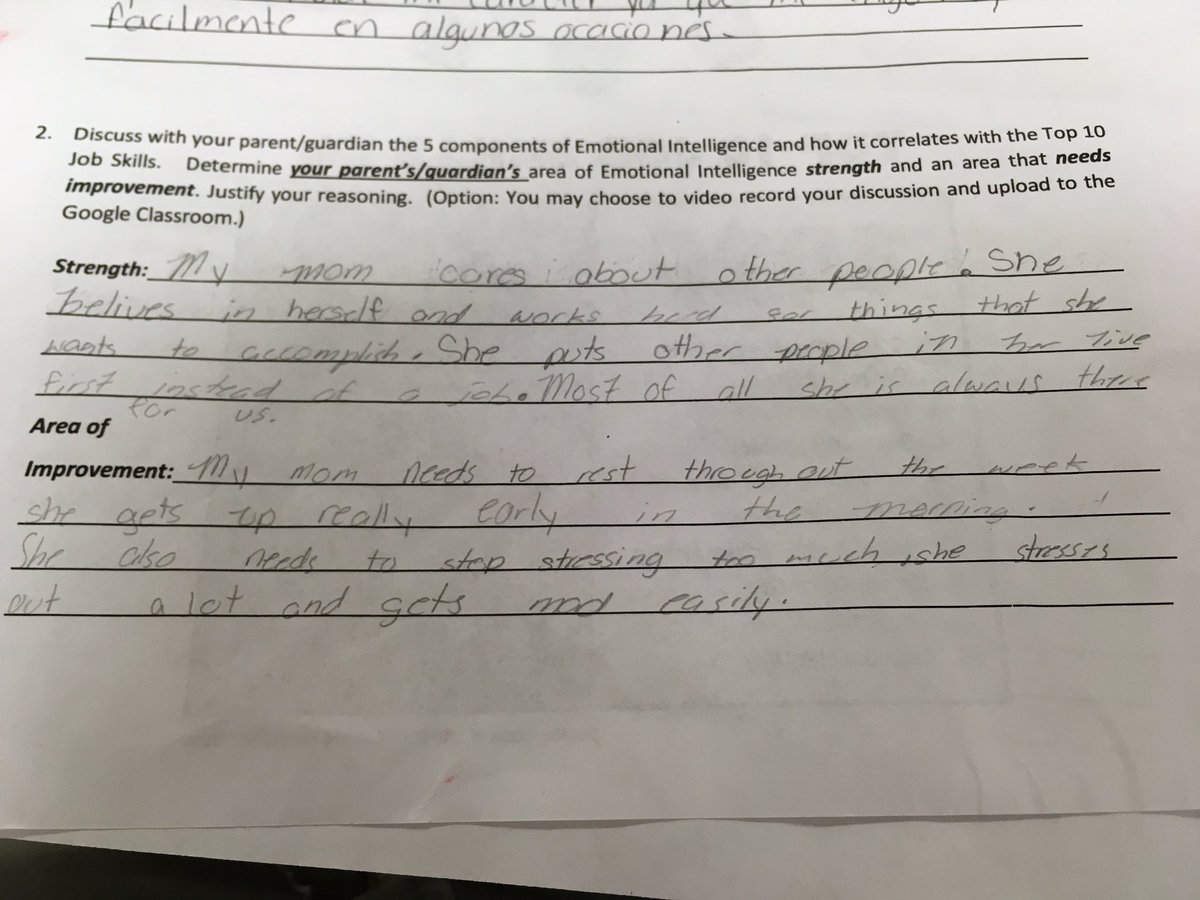 facilmente en algunas ocaciones.
2. Discuss with your parent/guardian the 5 components of Emotional Intelligence and how it correlates with the Top 10
Job Skills. Determine your parent's/guardian's area of Emotional Intelligence strength and an area that needs
improvement. Justify your reasoning. (Option: You may choose to video record your discussion and upload to the
Google Classroom.)
Strength: My mom cares about other people. She
belives in herself and works hard for things that she
wants to accomplish. She puts other people in her live
first instead of a job. Most of all she is always there
for us.
Area of
Improvement: My mom needs to rest through out the week
she gets up really early in the morning.
She also needs to stop stressing too much, she stresses
out a lot and gets mad easily.